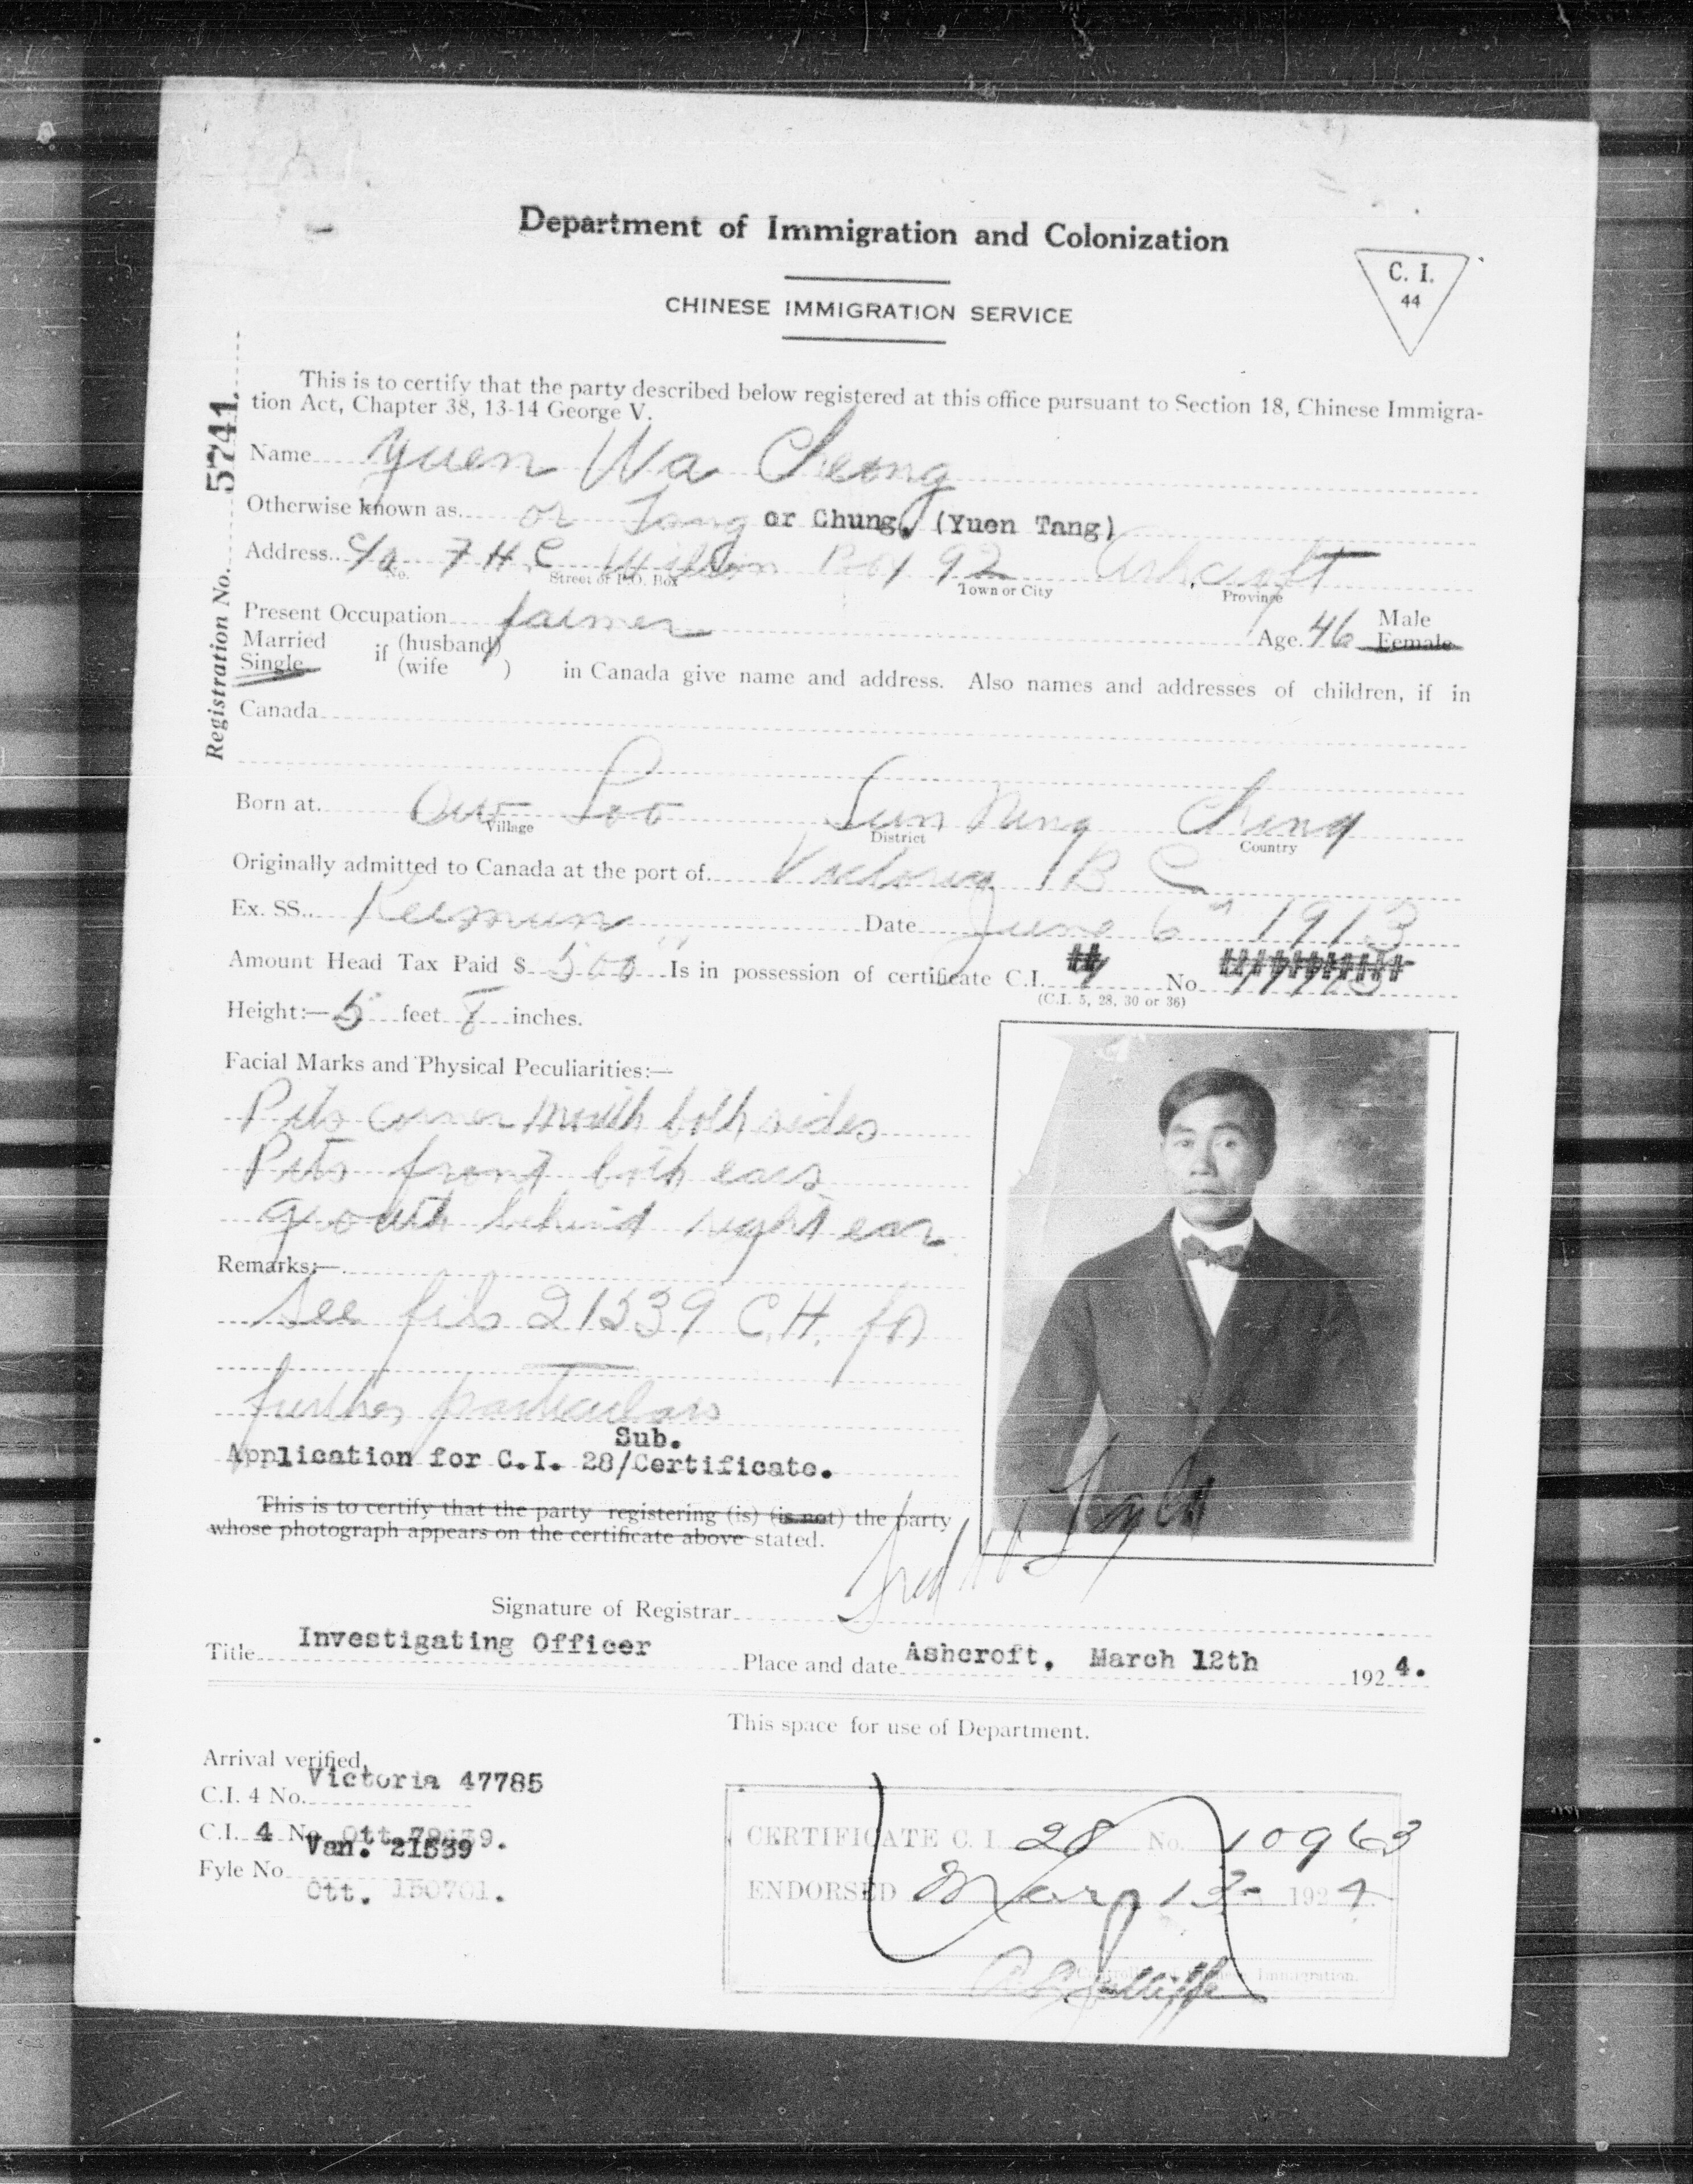 Department of Immigration and Colonization
CHINESE IMMIGRATION SERVICE
C. I.
44
Registration No. 5741.
This is to certify that the party described below registered at this office pursuant to Section 18, Chinese Immigra-
tion Act, Chapter 38, 13-14 George V.
Name Yuen Wa Cheong
Otherwise known as or Tong or Chung. (Yuen Tang)
Address c/o F H C Wilson Box 92 Ashcroft
No. Street or P.O. Box Town or City Province
Present Occupation farmer Age 46 Male Female
Married
Single if (husband) (wife ) in Canada give name and address. Also names and addresses of children, if in
Canada
Born at Soo Sun Ning China
Village District Country
Originally admitted to Canada at the port of Victoria B C
Ex. SS. Date June 6th 1913
Amount Head Tax Paid $ 500 Is in possession of certificate C.I. No
(C.I. 5, 28, 30 or 36)
Height:— 5 feet inches.
Facial Marks and Physical Peculiarities:—
Pits corner mouth both sides
Pits front both ears
growth behind right ear
Remarks:—
See file 21539 C.H. for
further particulars
Sub.
Application for C.I. 28/Certificate.
This is to certify that the party registering (is) (is not) the party
whose photograph appears on the certificate above stated.
Signature of Registrar Fred W. Taylor
Title Investigating Officer Place and date Ashcroft, March 12th 1924.
This space for use of Department.
Arrival verified,
Victoria 47785
C.I. 4 No.
C.I. 4 No. Ott.
Van. 21539
Fyle No.
Ott. 150701.
CERTIFICATE C. I. 28 No. 10963
ENDORSED Mar 13 1924
Immigration.